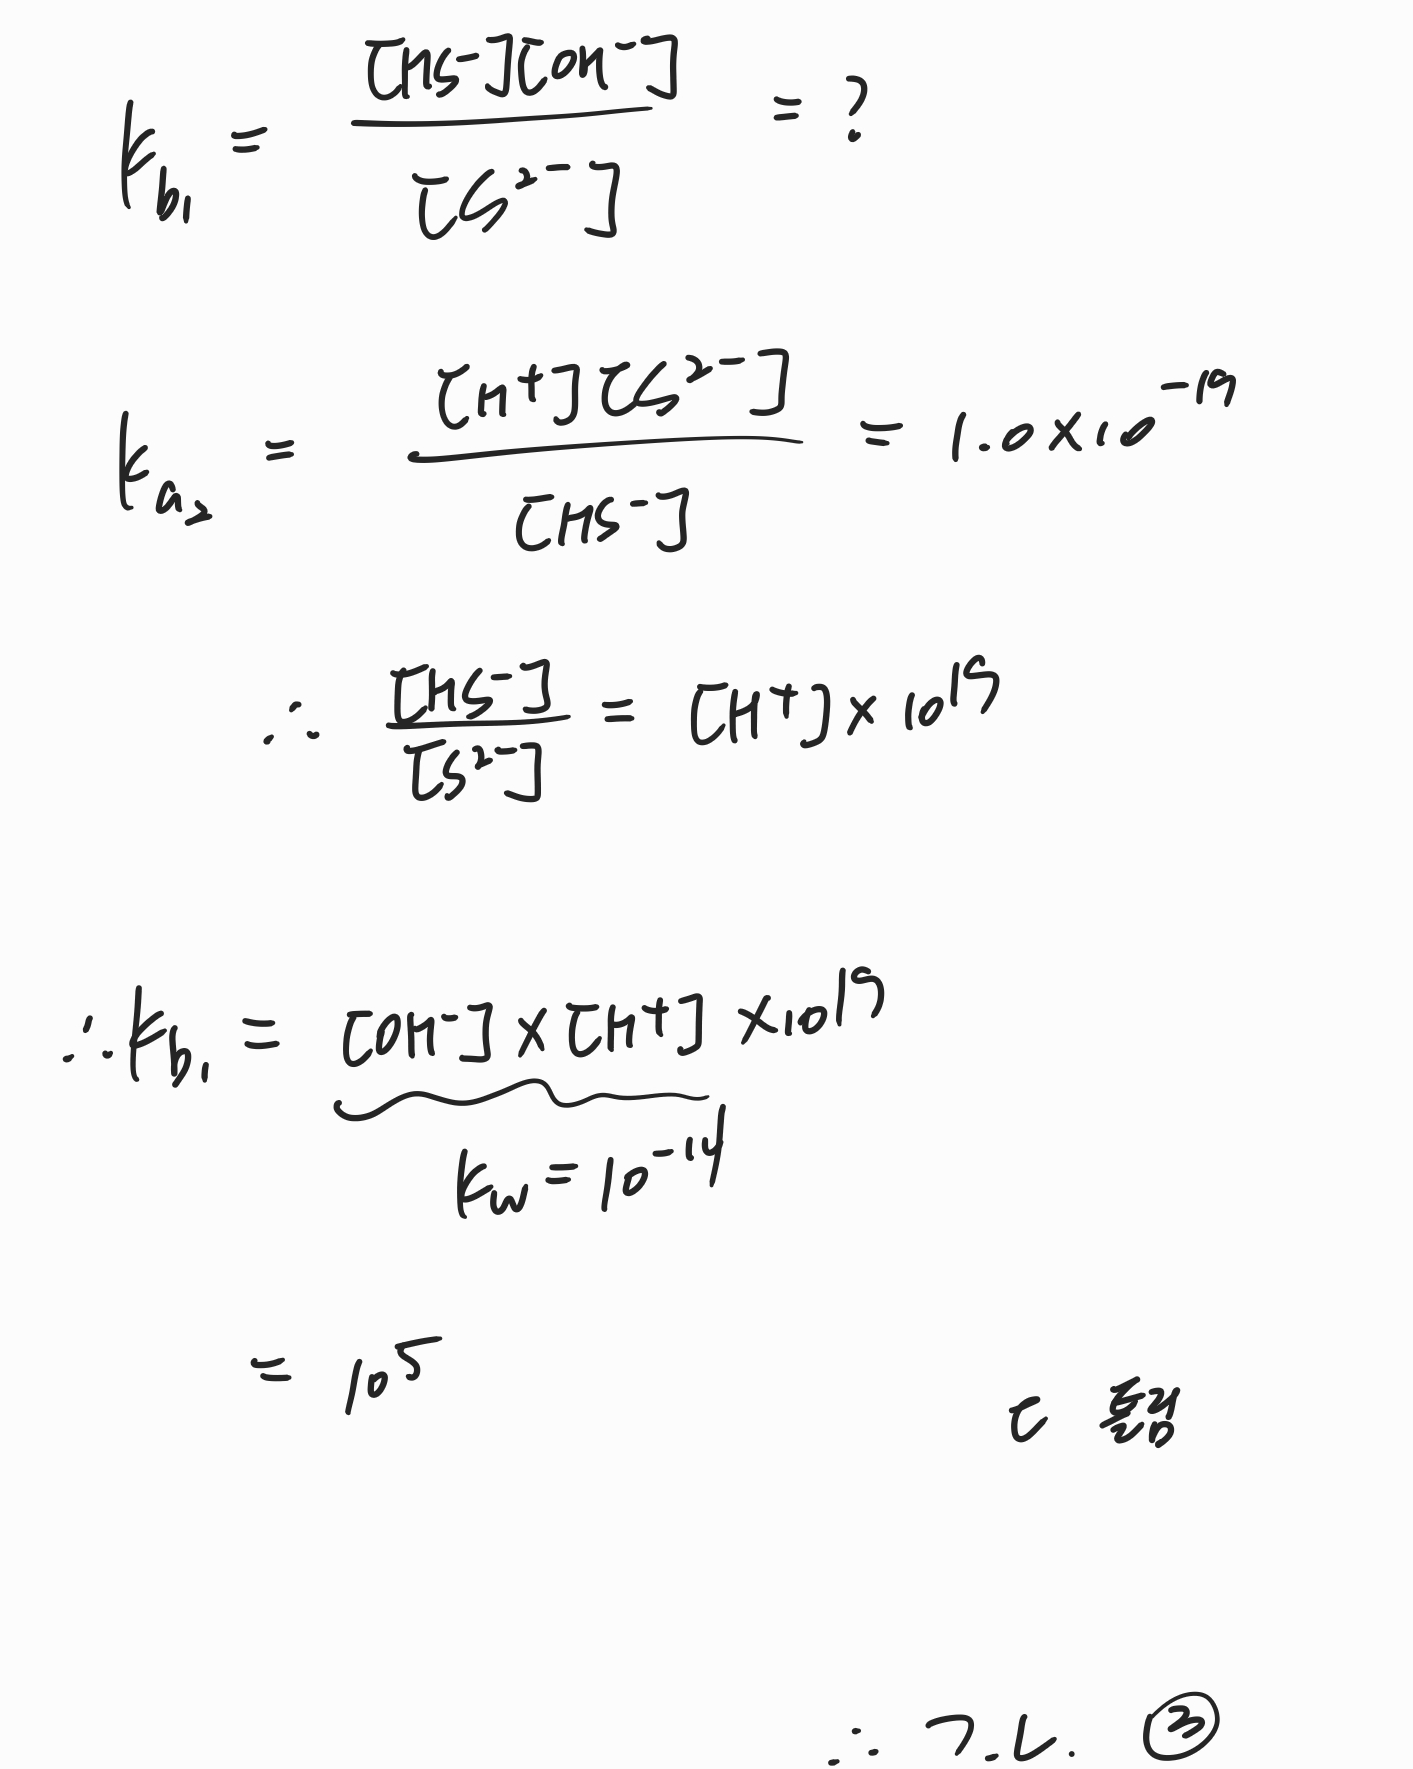 k_b₁ = [HS⁻][OH⁻] / [S²⁻] = ?
k_a₂ = [H⁺][S²⁻] / [HS⁻] = 1.0×10⁻¹⁹
∴ [HS⁻] / [S²⁻] = [H⁺] × 10¹⁹
∴ k_b₁ = [OH⁻] × [H⁺] ×10¹⁹
k_w = 10⁻¹⁴
= 10⁵
ㄷ 틀림
∴ ㄱ.ㄴ. ③